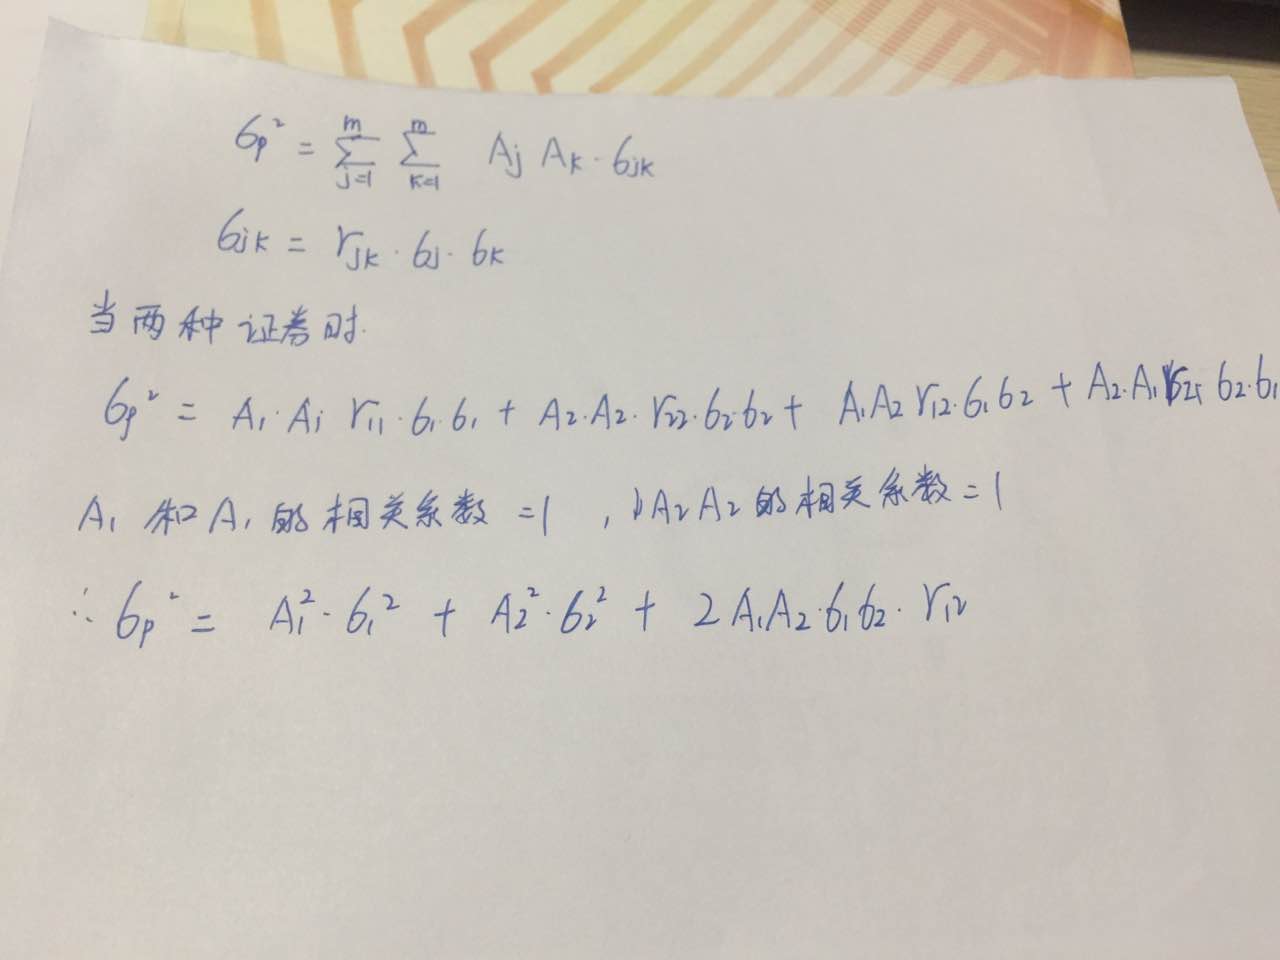 σp² = Σ(j=1→m) Σ(k=1→m) Aj AK · σjk
σjk = rjk · σj · σk
当两种证券时.
σp² = A₁·A₁ r₁₁·σ₁·σ₁ + A₂·A₂·r₂₂·σ₂·σ₂ + A₁A₂ r₁₂·σ₁σ₂ + A₂·A₁ r₂₁ σ₂·σ₁
A₁ 和 A₁ 的相关系数 =1 , A₂ A₂ 的相关系数 =1
∴ σp² = A₁²·σ₁² + A₂²·σ₂² + 2A₁A₂·σ₁σ₂·r₁₂